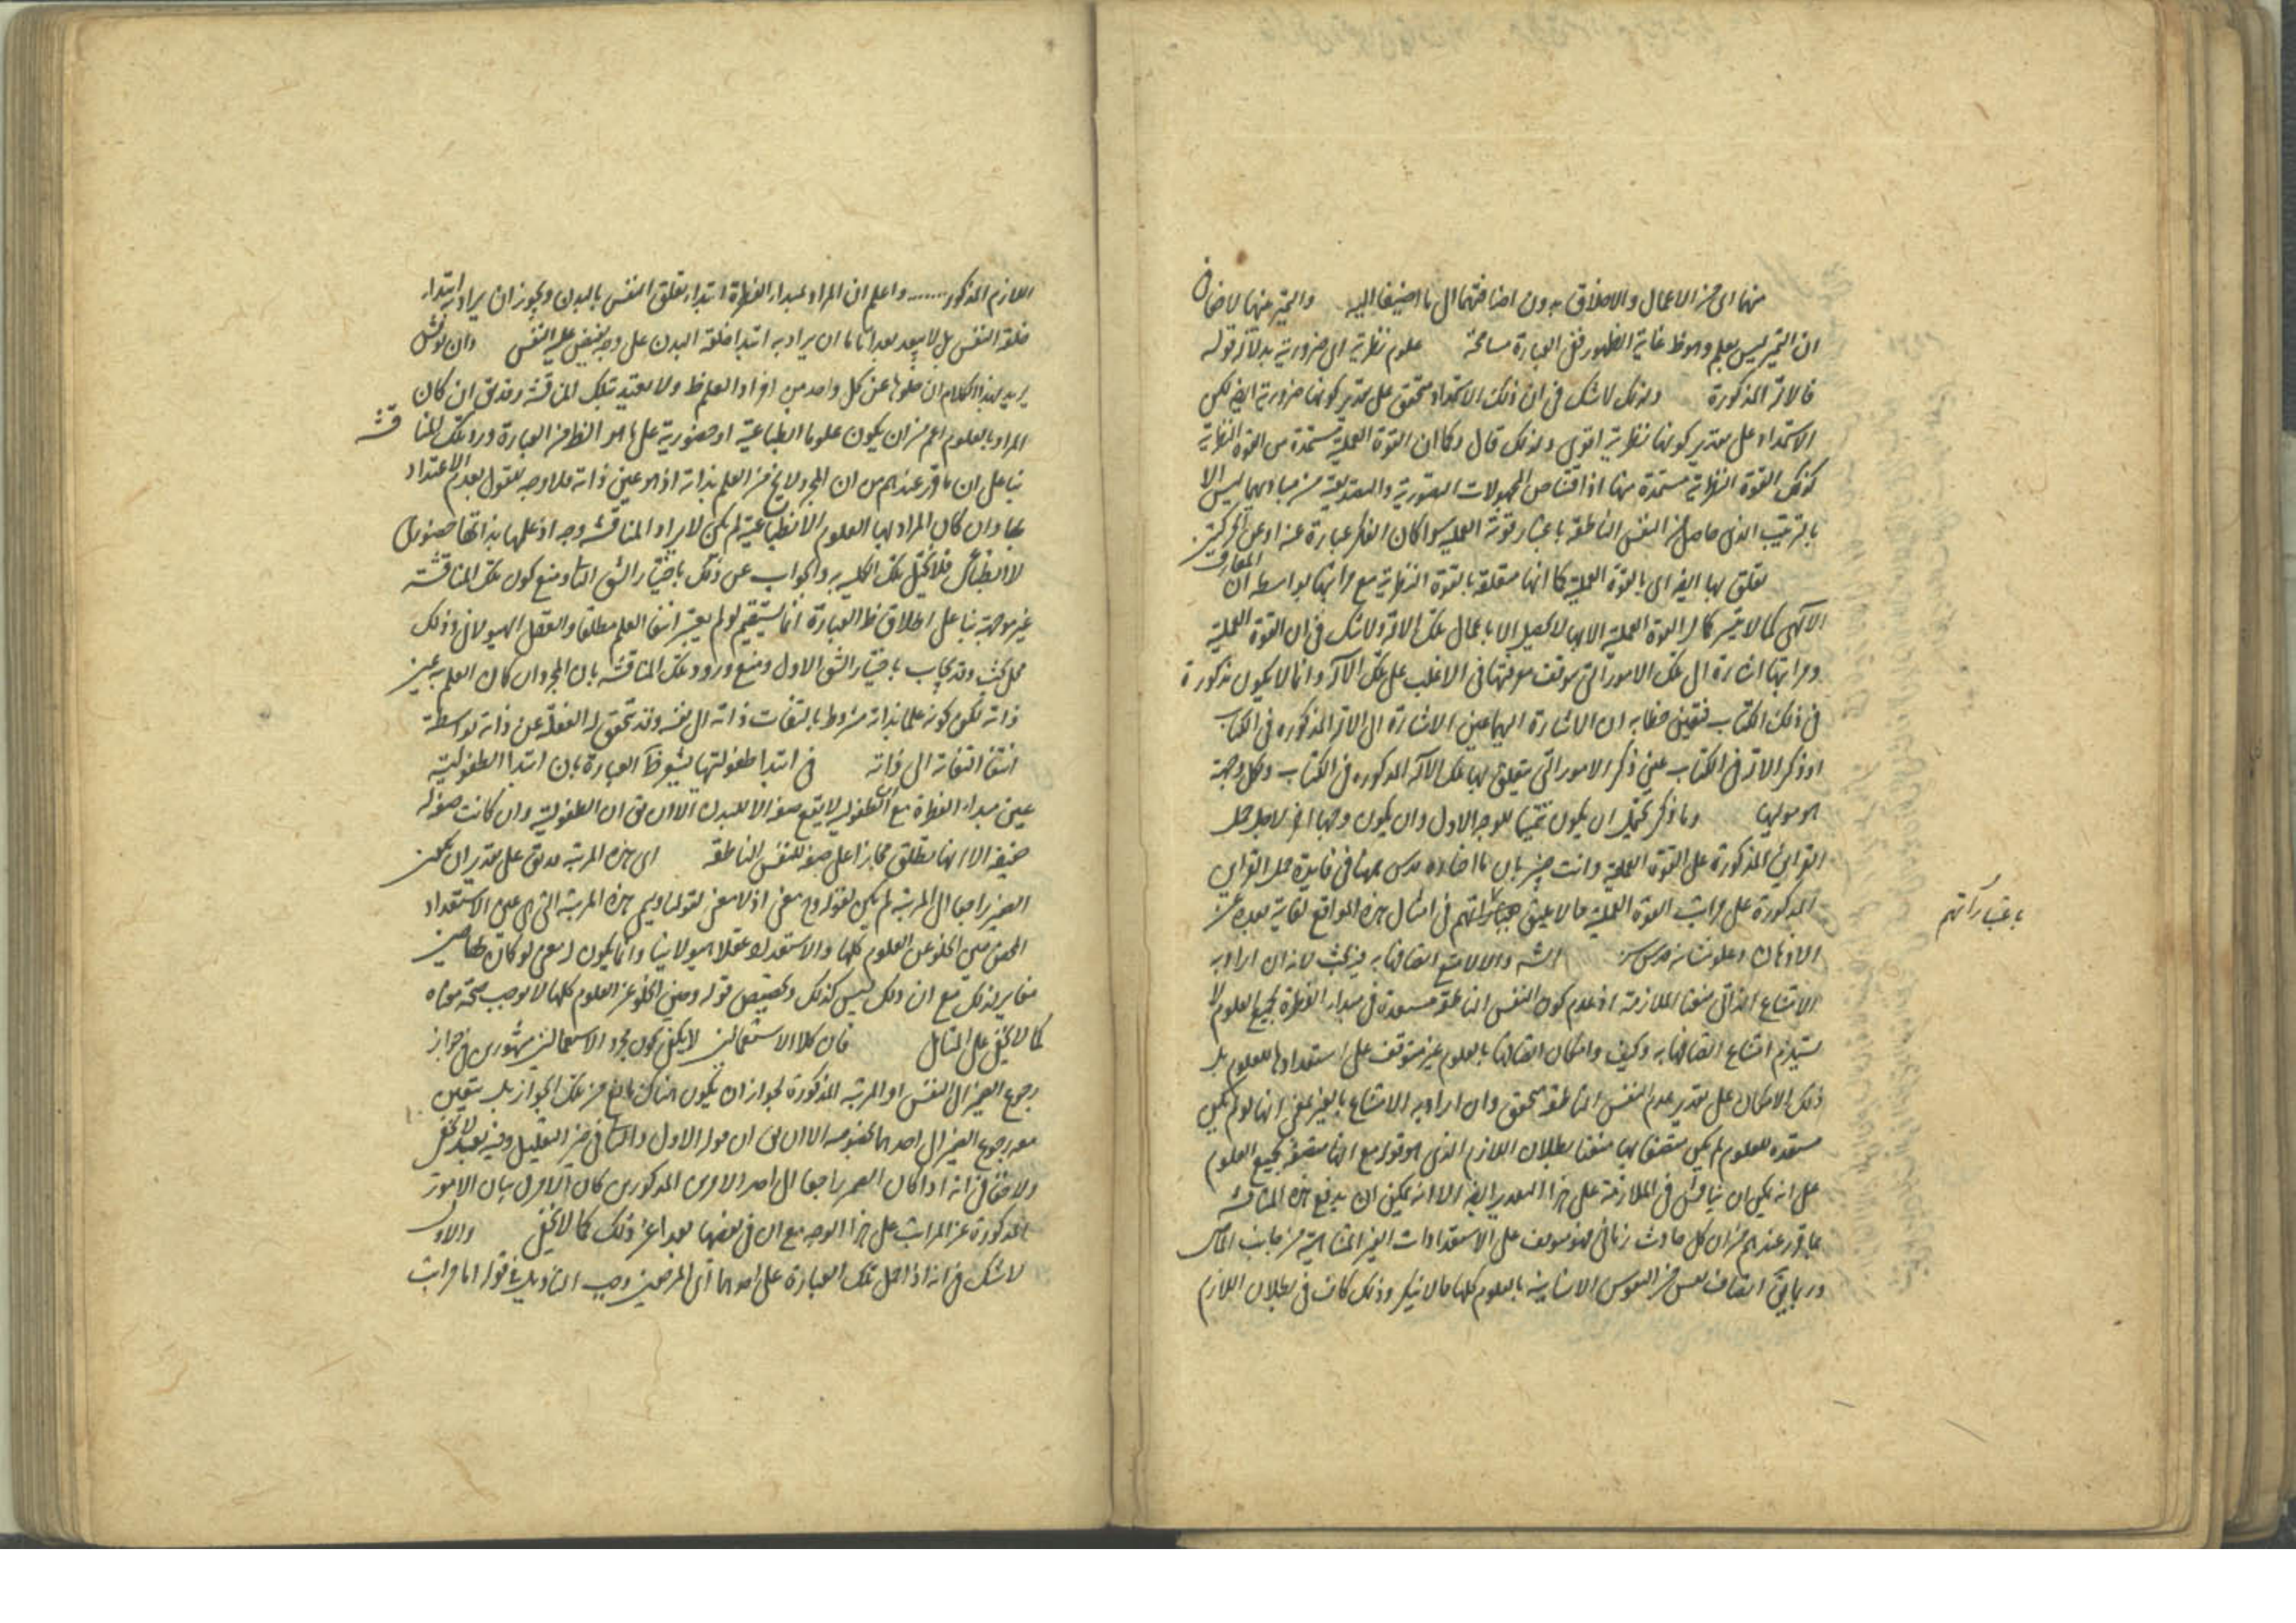 منها اى من الاعمال والاخلاق بدون اضافتهما الى ما اضيفا اليه والتميز منها لا خفا فى
ان التميز ليس بعلم وهو ظ غاية الظهور ففى العبارة مسامحة علوم نظرية اى ضرورية بدلالة قوله
فالآلة المذكورة ولذلك لا شك فى ان ذلك الاستمداد متحقق على تقدير كونها ضرورية ايض لكن
الاستمداد على تقدير كونها نظرية اقوى ولذلك قال وكما ان القوة العملية مستمدة من القوة النظرية
كذلك القوة النظرية مستمدة منها اذ اقتناص المجهولات التصورية والتصديقية من مباديهما ليس الا
بالترتيب الذى حاصل من النفس الناطقة باعتبار قوته العملية سوا كان الفكر عبارة عنه او عن الحركتين
تعلق بها ايض اى بالقوة العملية كما انها متعلقة بالقوة النظرية مع مراتبها بواسطة ان المعارف
الآلهى كما لا يتيسر كمال القوة العملية الا بها لا يحصل الا باعمال تلك الآلة ولا شك فى ان القوة العملية
ومراتبها اشارة الى تلك الامور التى يتوقف معرفتها فى الاغلب على تلك الآلة وانما لا يكون مذكورة
فى ذلك الكتاب فتعين خطابه ان الاشارة اليها عين الاشارة الى الآلة المذكوره فى الكتاب
او ذكر الآلة فى الكتاب عين ذكر الامور التى يتعلق بها تلك الآلة المذكوره فى الكتاب ولكل وجهة
هو موليها وما ذكر يحتمل ان يكون تتميما للوجه الاول وان يكون وجها اخر لاجل حمل
القراين المذكورة على القوة العملية وانت خبير بان ما افاده قدس سره هنا فى فايدة حمل القراين
المذكورة على مراتب القوة العملية مما لا يليق باعتباراتهم فى امثال هذه المواقع لغاية بعده عن
باعتباراتهم
الاذهان وعلو شانه قدس سره الشه والا لامتنع اتصافها به فيه بحث لانه ان اراد به
الامتناع الذاتى منعنا الملازمة اذ عدم كون النفس الناطقة مستعدة فى مبداء الفطرة لجميع العلوم لا
يستلزم امتناع اتصافها به وكيف وامكان اتصافها بالعلوم غير متوقف على استعدادها للعلوم بل
ذلك الامكان على تقدير عدم النفس الناطقة متحقق وان اراد به الامتناع بالغير بمعنى انها لو لم يكن
مستعده للعلوم لم يكن متصفا بها منعنا بطلان اللازم الذى هو قوله مع انها متصفة بجميع العلوم
على انه يمكن ان يناقش فى الملازمة على هذا التقدير ايض الا انه يمكن ان يدفع هذه المناقشة
بما تقرر عندهم من ان كل حادث زمانى فهو موقوف على الاستعدادات الغير المتناهية من جانب الماضى
وربما يق اتصاف نفس من النفوس الانسانية بالعلوم كلها مما لا ينكر وذلك كاف فى بطلان اللازم
اللازم المذكور ...... واعلم ان المراد بمبداء الفطرة ابتداء تعلق النفس بالبدن ويجوز ان يراد به ابتداء
خلقة النفس بل لا يبعد بعدا تاما ان يراد به ابتدا خلقة البدن على وجه يفيض عليه النفس وان نوقش
يريد بهذا الكلام ان خلوها عن كل واحد من افراد العلم ظ ولا يعتد بتلك المناقشة وقد يق ان كان
المراد بالعلوم اعم من ان يكون علوما انطباعية او حضورية على ما هو الظ من العبارة ورد تلك المناقشة
بنا على ان ما تقرر عندهم من ان المجرد لا يخ من العلم بذاته اذ هو عين ذاته فلا وجه للقول بعدم الاعتداد
بها وان كان المراد بها العلوم الانطباعية لم يكن لايراد المناقشة وجه اذ علمها بذاتها حضورى
لا انطباعى فلا يختل تلك الكليه به والجواب عن ذلك باختيار الشق الثانى ومنع كون تلك المناقشة
غير موجهة بنا على اطلاق ظ العبارة انما يستقيم لو لم يعتبر انتفا العلم مطلقا والعقل الهيولانى وذلك
محل بحث وقد يجاب باختيار الشق الاول ومنع ورود تلك المناقشة بان المجرد وان كان العلم به عين
ذاته لكن كونه علما بذاته مشروط بالتفات ذاته الى نفسه وقد تحقق له الغفلة عن ذاته بواسطة
انتفا التفاته الى ذاته فى ابتدا طفوليتها يشعر ظ العبارة بان ابتدا الطفولية
عين مبداء الفطرة مع ان الطفولية لا يقع صفة الا للبدن الا ان يق ان الطفولية وان كانت صفة له
حقيقة الا انها يطلق مجازا على صفة للنفس الناطقة اى هذه المرتبة قد يق على تقدير ان يكون
الضمير راجعا الى المرتبة لم يكن لقوله وح معنى اذ لا معنى لقولنا ويسمى هذه المرتبة التى هى عين الاستعداد
المحض حين الخلو عن العلوم كلها والاستعداد عقلا هيولانيا وانما يكون له معنى لو كان لها حين
مغاير لذلك مع ان ذلك ليس كذلك وتخصيص قوله وحين الخلو عن العلوم كلها لا يوجب صحة معناه
كما لا يخفى على المتامل فان كلا الاستعمالين لا يكفى كون مجرد الاستعمالين مشهورين فى جواز
رجوع الضمير الى النفس او المرتبة المذكورة لجواز ان يكون هناك مانع من تلك الجواز بل يتعين
معه رجوع الضمير الى احدهما بخصوصه الا ان يق ان قوله الاول والثانى فى حيز التعليل وفيه بعد لا يخفى
ولا خفا فى انه اذا كان الضمير راجعا الى احد الامرين المذكورين كان الامر فى بيان الامور
المذكورة عن المراتب على هذا الوجه مع ان فى بعضها بعدا عن ذلك كما لا يخفى والاول
لا شك فى انه اذا حمل تلك العبارة على احدهما اى المرضيين وجب التاويل فى قوله اما مراتب